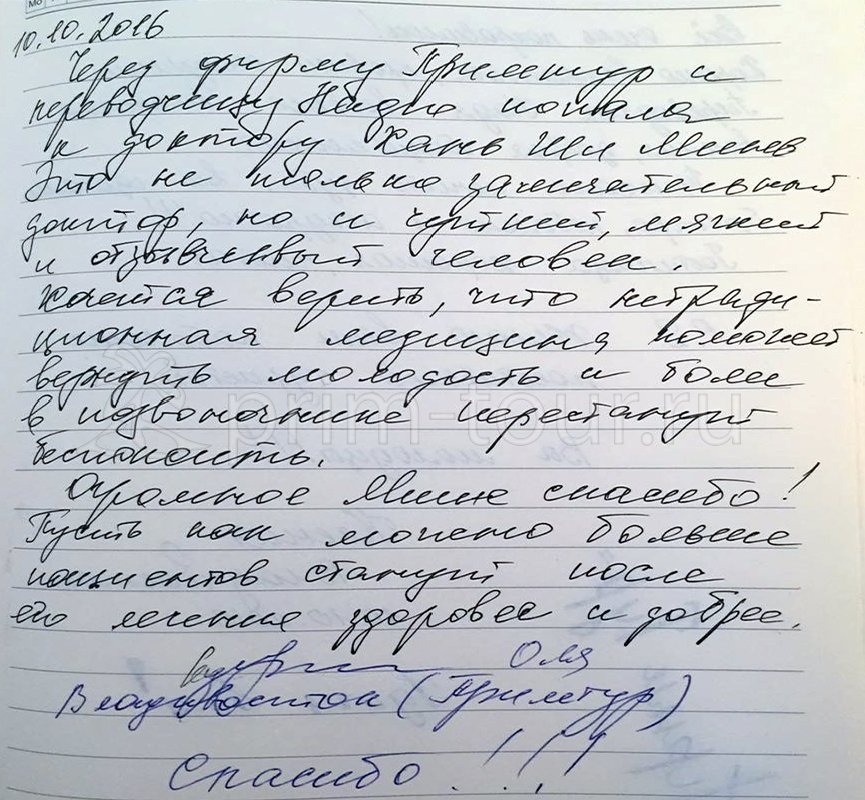 10.10.2016
Через фирму Примтур и
переводчицу Надю попала
к доктору Хань Ши Минь
Это не только замечательный
доктор, но и чуткий, мягкий
и отзывчивый человек.
Хочется верить, что нетради-
ционная медицина поможет
вернуть молодость и боли
в позвоночнике перестанут
беспокоить.
Огромное Мине спасибо!
Пусть как можно больше
пациентов станут после
его лечения здоровее и добрее.
Оля
Владивосток (Примтур)
Спасибо!!!
prim-tour.ru